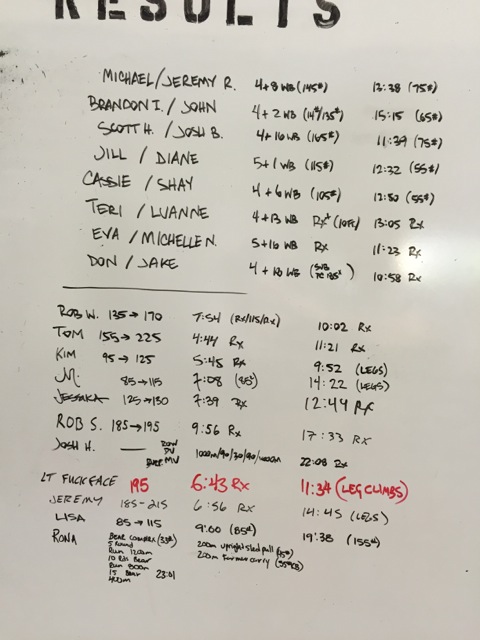 RESULTS
MICHAEL/JEREMY R. 4+8 WB (145#) 13:38 (75#)
BRANDON I. / JOHN 4+2 WB (14#/135#) 15:15 (65#)
SCOTT H. / JOSH B. 4+16 WB (165#) 11:39 (75#)
JILL / DIANE 5+1 WB (115#) 12:32 (55#)
CASSIE / SHAY 4+6 WB (105#) 12:50 (55#)
TERI / LUANNE 4+13 WB Rx+ (10Ft) 13:05 Rx
EVA / MICHELLE N. 5+16 WB Rx 11:23 Rx
DON / JAKE 4+18 WB (SUB 135#) 10:58 Rx
ROB W. 135→170 7:54 (Rx/115/Rx) 10:02 Rx
TOM 155→225 4:44 Rx 11:21 Rx
KIM 95→125 5:45 Rx 9:52 (LEGS)
85→115 7:08 (85#) 14:22 (LEGS)
JESSIKA 125→130 7:39 Rx 12:44 Rx
ROB S. 185→195 9:56 Rx 17:33 Rx
JOSH H. — ROW PU MU 22:08 Rx
LT FUCKFACE 195 6:43 Rx 11:34 (LEG CLIMBS)
JEREMY 185-215 6:56 Rx 14:45 (LEGS)
LISA 85→115 9:00 (85#) 19:38 (155#)
RONA BEAR COMPLEX (33#) 200m upright sled pull
5 Round 200m Farmer carry
Run 1200m
10 Rds Bear
Run 800m
15 Bear 23:01
400m